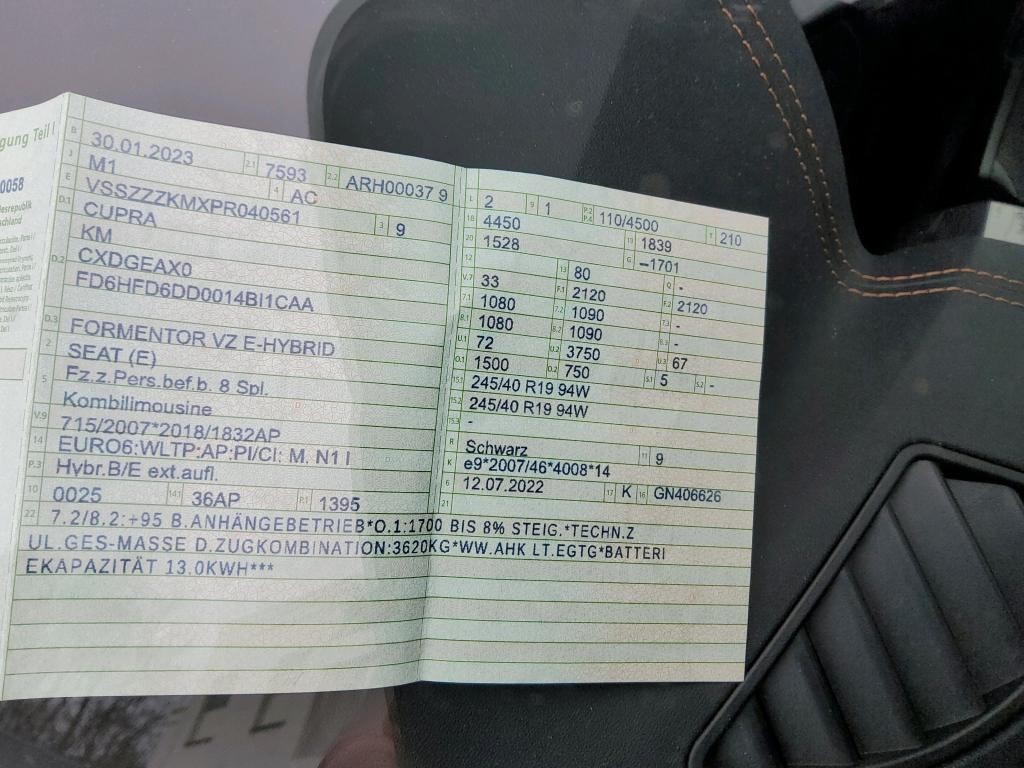 gung Teil I
0058
desrepublik
schland
B 30.01.2023 2.1 7593 2.2 ARH00037 9
J M1 4 AC
E VSSZZZKMXPR040561 3 9
D.1 CUPRA
KM
D.2 CXDGEAX0
FD6HFD6DD0014BI1CAA
D.3 FORMENTOR VZ E-HYBRID
2 SEAT (E)
5 Fz.z.Pers.bef.b. 8 Spl.
Kombilimousine
V.9 715/2007*2018/1832AP
14 EURO6:WLTP:AP:PI/CI: M, N1 I
P.3 Hybr.B/E ext.aufl.
10 0025 14.1 36AP P.1 1395
L 2 9 1 P.2 P.4 110/4500 T 210
18 4450 19 1839
20 1528 G –1701
12 13 80 Q -
V.7 33 F.1 2120 F.2 2120
7.1 1080 7.2 1090 7.3 -
8.1 1080 8.2 1090 8.3 -
U.1 72 U.2 3750 U.3 67
O.1 1500 O.2 750 S.1 5 S.2 -
15.1 245/40 R19 94W
15.2 245/40 R19 94W
15.3 -
R Schwarz 11 9
K e9*2007/46*4008*14
6 12.07.2022 17 K 16 GN406626
21
22 7.2/8.2:+95 B.ANHÄNGEBETRIEB*O.1:1700 BIS 8% STEIG.*TECHN.Z
UL.GES-MASSE D.ZUGKOMBINATION:3620KG*WW.AHK LT.EGTG*BATTERI
EKAPAZITÄT 13.0KWH***